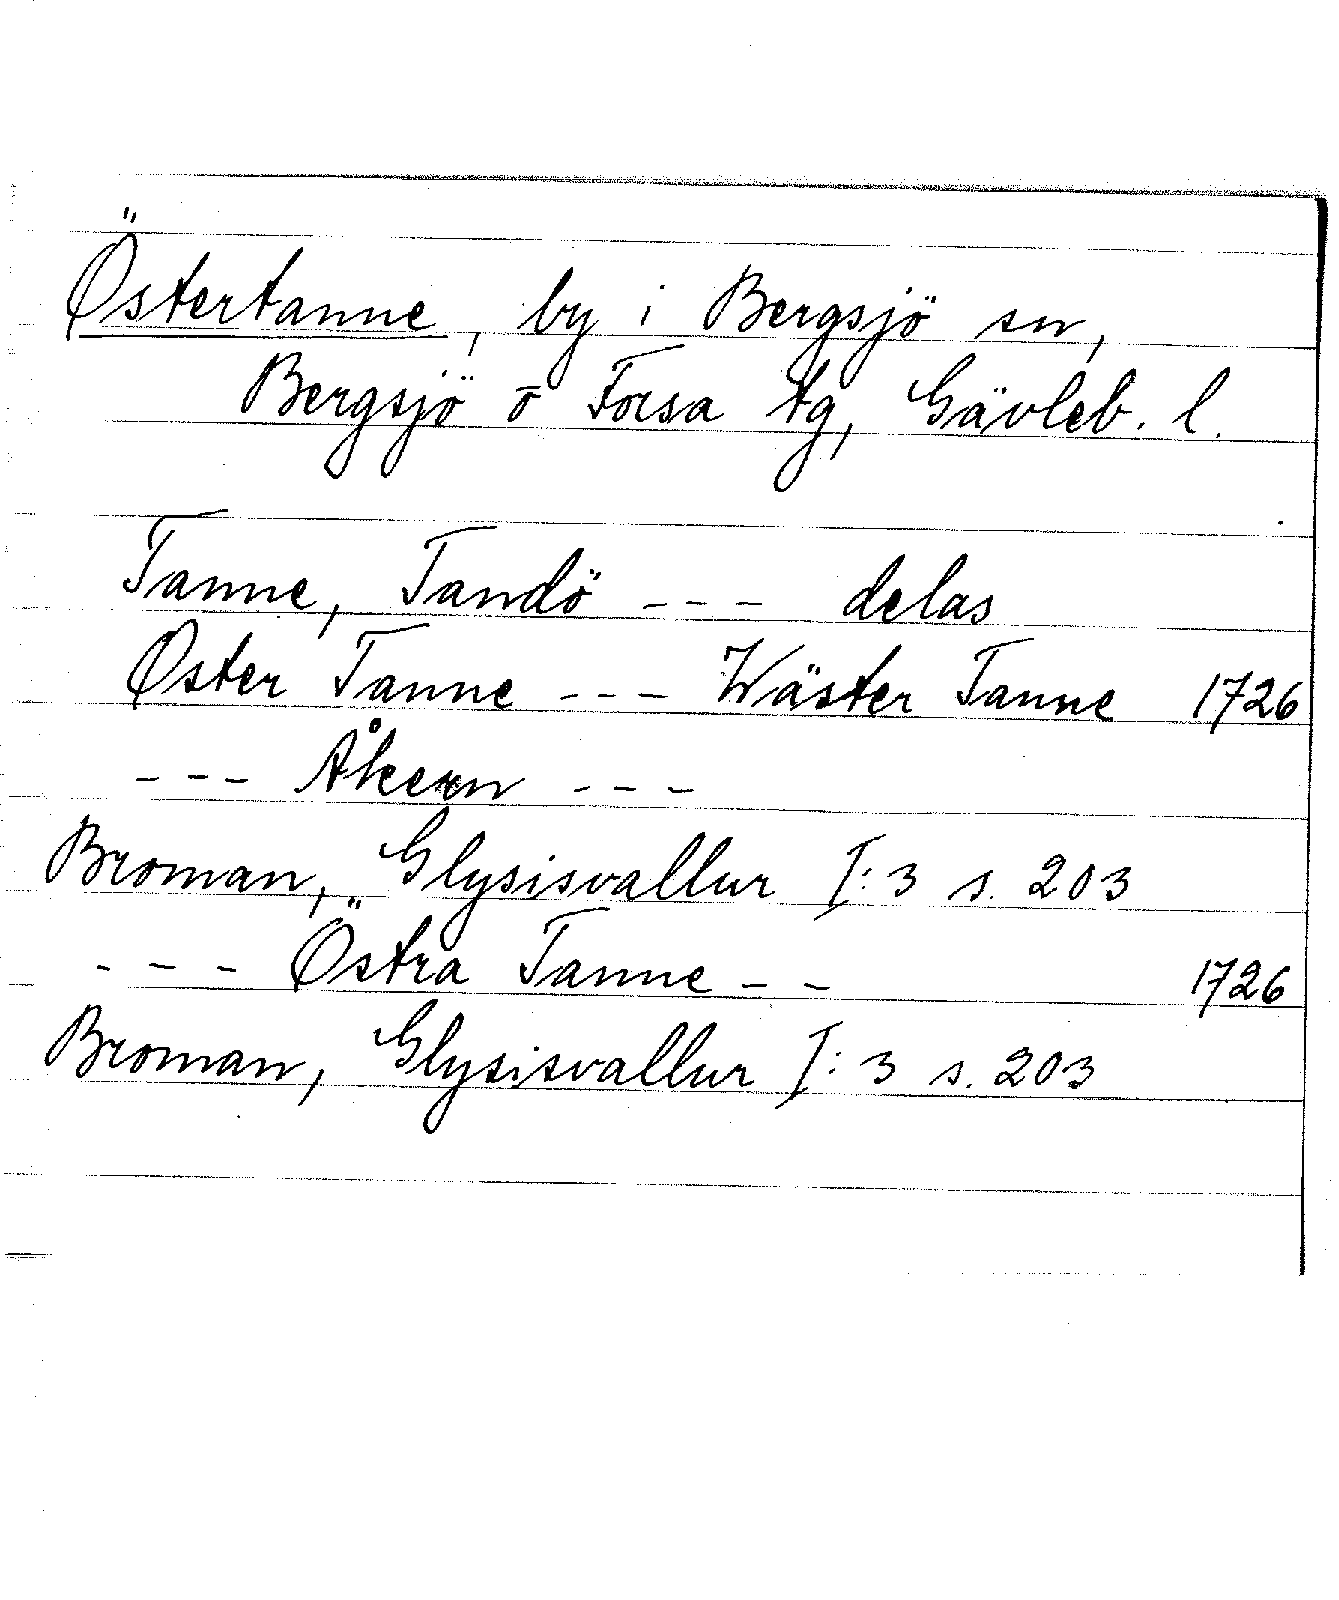 Östertanne, by i Bergsjö sn,
Bergsjö o Forsa tg, Gävleb. l.
Tanne, Tandö --- delas
Öster Tanne --- Wäster Tanne 1726
--- Åkern ---
Broman, Glysisvallur I:3 s. 203
--- Östra Tanne -- 1726
Broman, Glysisvallur I:3 s. 203